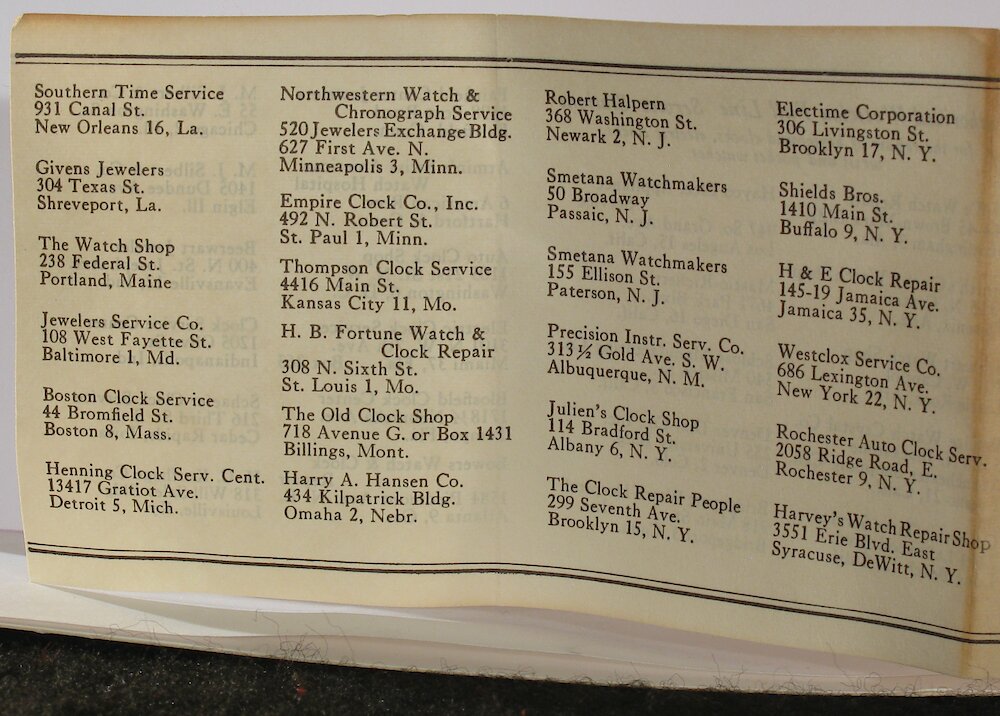 Southern Time Service
931 Canal St.
New Orleans 16, La.
Givens Jewelers
304 Texas St.
Shreveport, La.
The Watch Shop
238 Federal St.
Portland, Maine
Jewelers Service Co.
108 West Fayette St.
Baltimore 1, Md.
Boston Clock Service
44 Bromfield St.
Boston 8, Mass.
Henning Clock Serv. Cent.
13417 Gratiot Ave.
Detroit 5, Mich.
Northwestern Watch &
Chronograph Service
520 Jewelers Exchange Bldg.
627 First Ave. N.
Minneapolis 3, Minn.
Empire Clock Co., Inc.
492 N. Robert St.
St. Paul 1, Minn.
Thompson Clock Service
4416 Main St.
Kansas City 11, Mo.
H. B. Fortune Watch &
Clock Repair
308 N. Sixth St.
St. Louis 1, Mo.
The Old Clock Shop
718 Avenue G. or Box 1431
Billings, Mont.
Harry A. Hansen Co.
434 Kilpatrick Bldg.
Omaha 2, Nebr.
Robert Halpern
368 Washington St.
Newark 2, N. J.
Smetana Watchmakers
50 Broadway
Passaic, N. J.
Smetana Watchmakers
155 Ellison St.
Paterson, N. J.
Precision Instr. Serv. Co.
313½ Gold Ave. S. W.
Albuquerque, N. M.
Julien's Clock Shop
114 Bradford St.
Albany 6, N. Y.
The Clock Repair People
299 Seventh Ave.
Brooklyn 15, N. Y.
Electime Corporation
306 Livingston St.
Brooklyn 17, N. Y.
Shields Bros.
1410 Main St.
Buffalo 9, N. Y.
H & E Clock Repair
145-19 Jamaica Ave.
Jamaica 35, N. Y.
Westclox Service Co.
686 Lexington Ave.
New York 22, N. Y.
Rochester Auto Clock Serv.
2058 Ridge Road, E.
Rochester 9, N. Y.
Harvey's Watch Repair Shop
3551 Erie Blvd. East
Syracuse, DeWitt, N. Y.